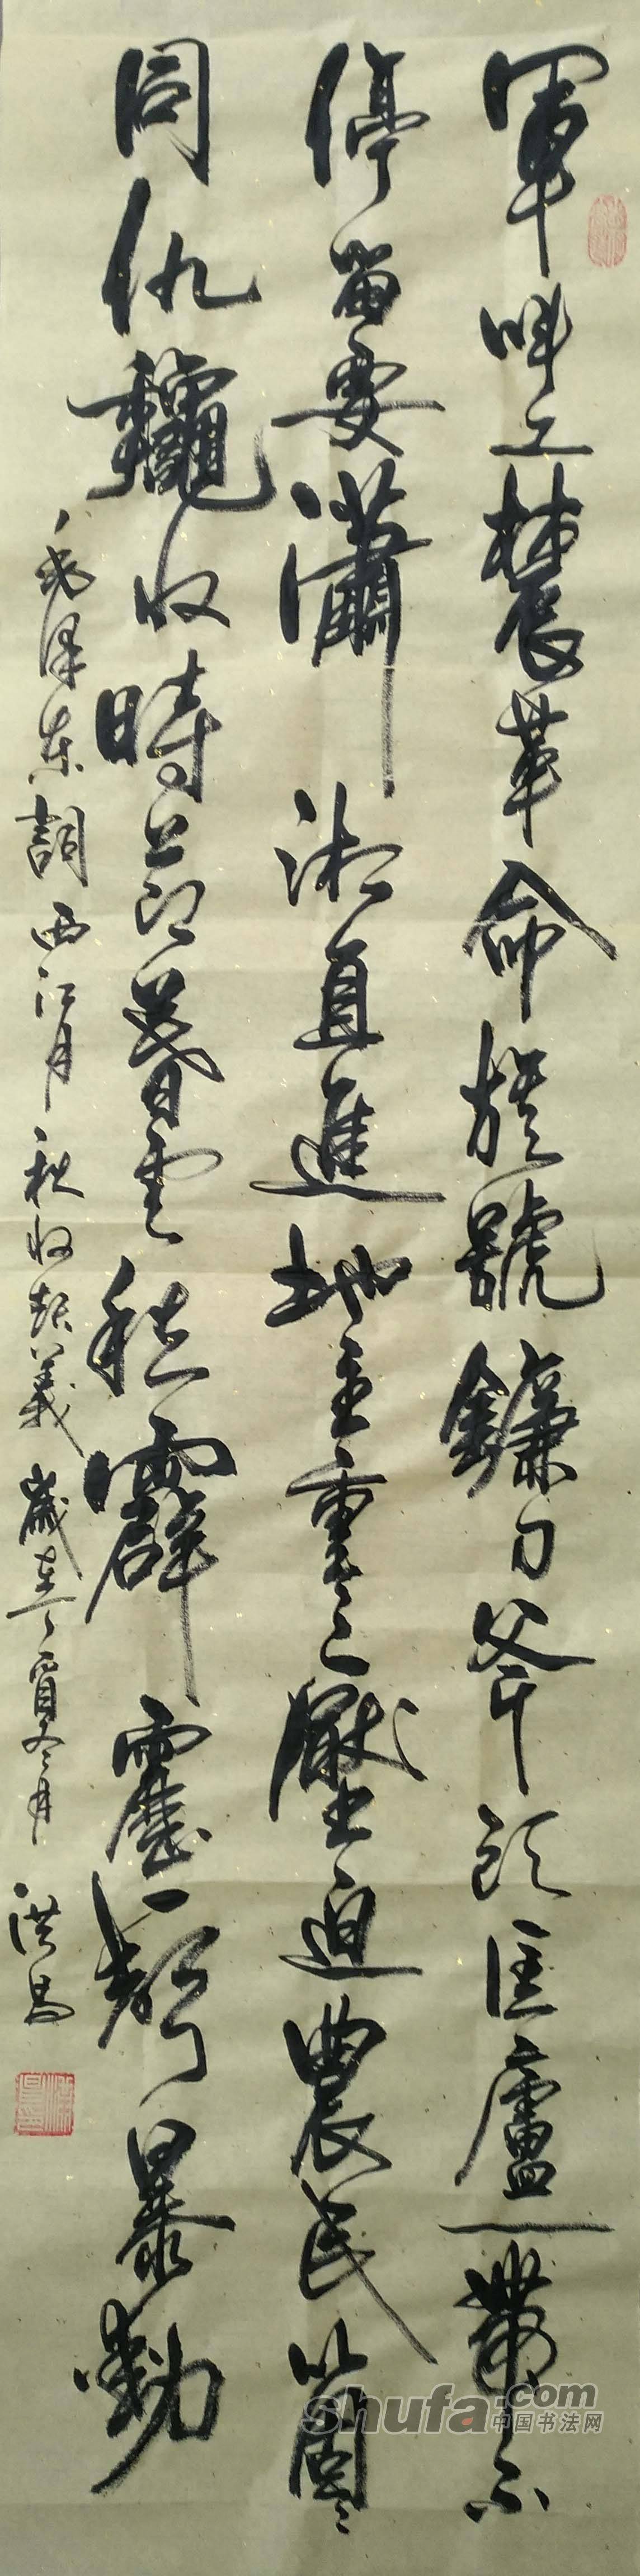 軍叫工農革命旗號鐮刀斧頭匡廬一帶不
停留要瀟湘直進地主重重壓迫農民個個
同仇龝收時節暮雲稠霹靂一聲暴動
毛澤東詞西江月秋收起義歲在
寅冬月
洪昌
shufa.com
中国书法网